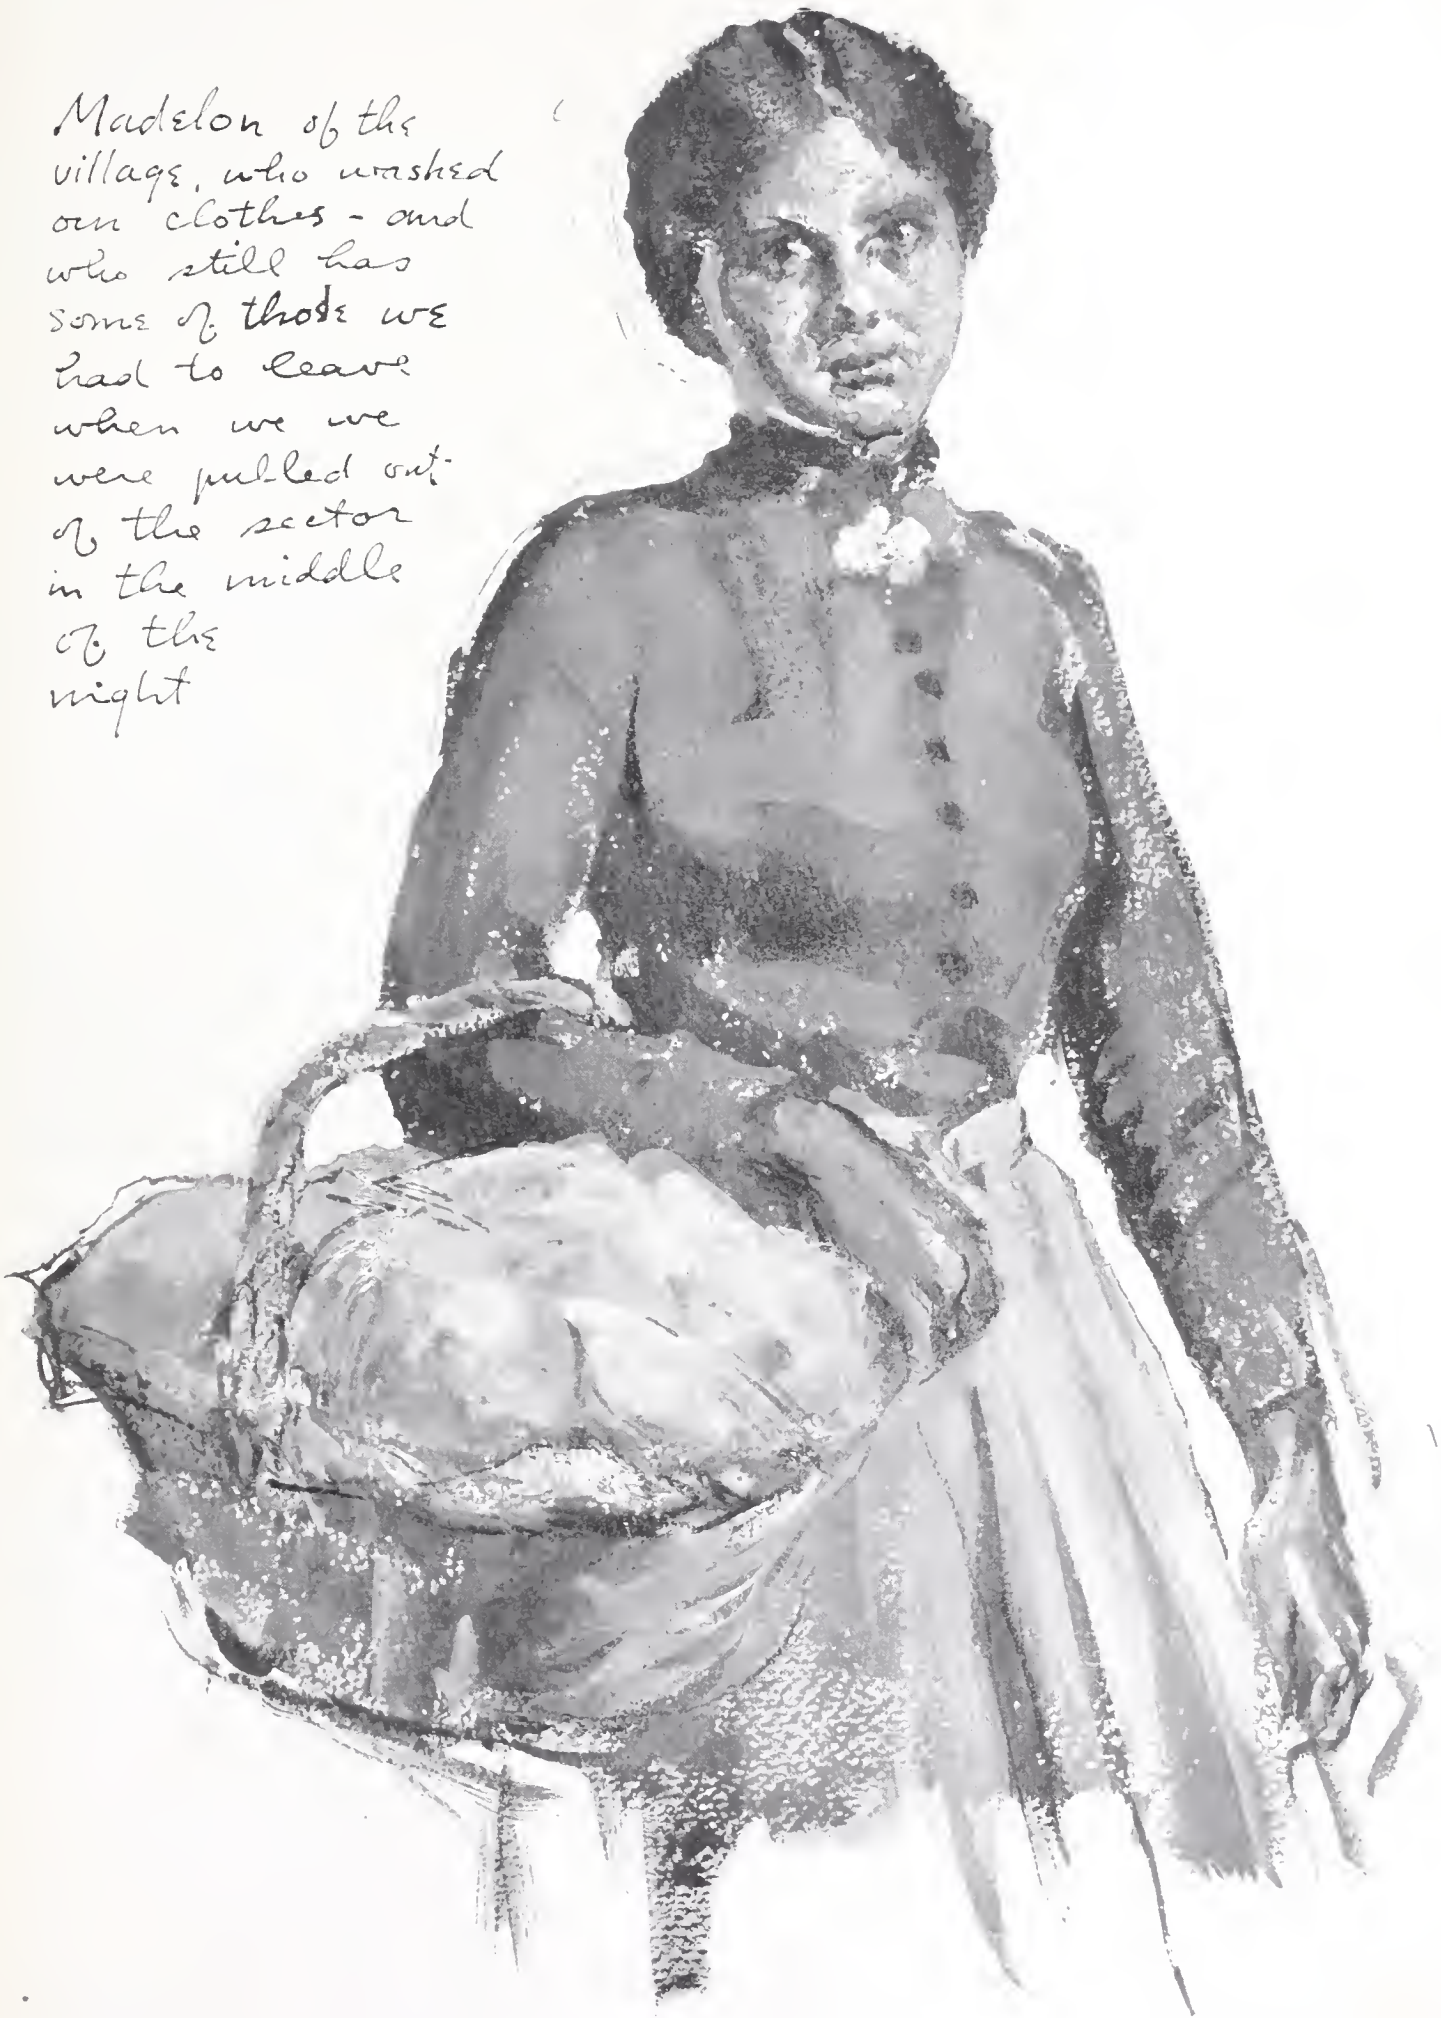 Madelon of the
village, who washed
our clothes - and
who still has
some of those we
had to leave
when we we
were pulled out
of the sector
in the middle
of the
night